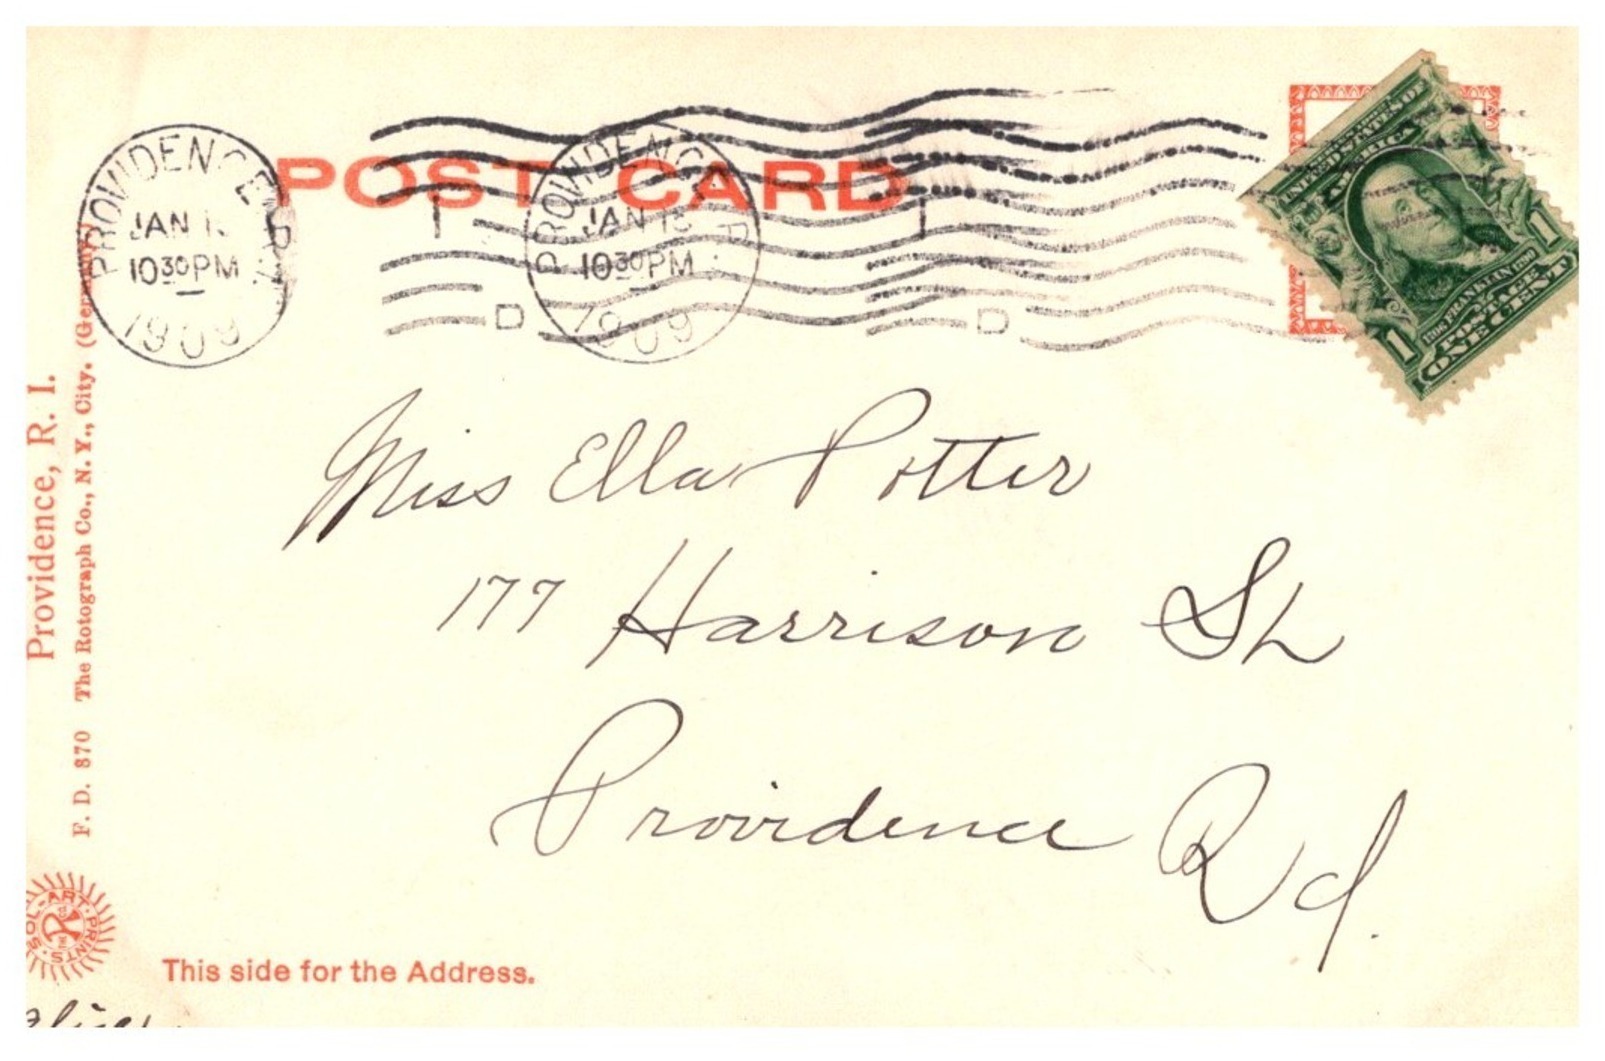 POST CARD
PROVIDENCE, R.I.
JAN 1
10 30 PM
1909
D
PROVIDENCE R
JAN 13
10 30 PM
1909
D
UNITED STATES OF
AMERICA
1706 FRANKLIN 1790
POSTAGE
1 ONE CENT 1
Miss Ella Potter
177 Harrison St
Providence Rd.
Providence, R. I.
F. D. 370 The Rotograph Co., N. Y., City. (Germany)
SOL-ART-PRINTS
This side for the Address.